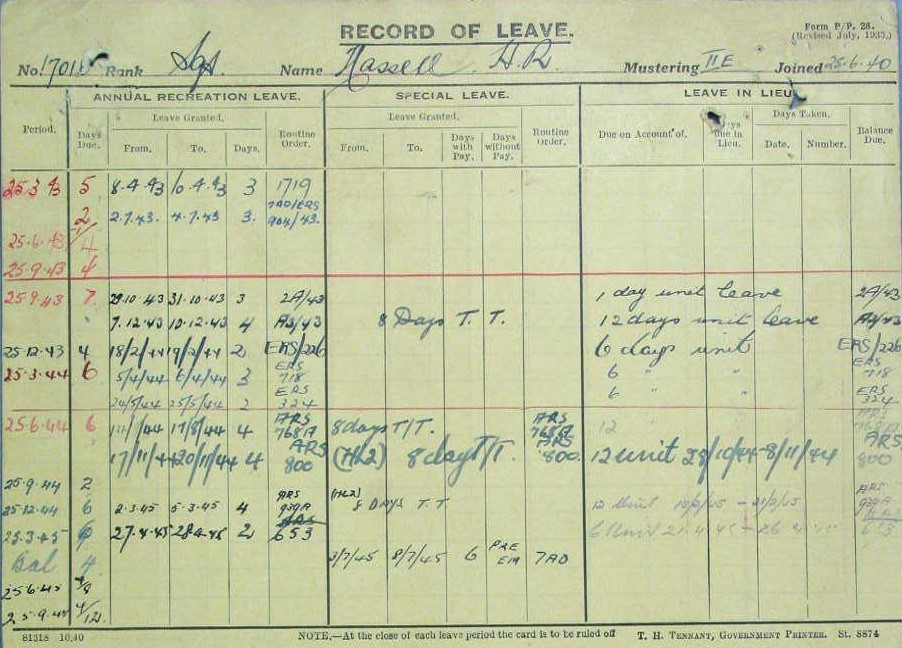 RECORD OF LEAVE.
Form P/P. 28.
(Revised July, 1933.)
No. Rank Sgt. Name Hassell H.R. Mustering II E Joined 25.6.40
ANNUAL RECREATION LEAVE. SPECIAL LEAVE. LEAVE IN LIEU
Period. Days Due. Leave Granted. Routine Order. Leave Granted. Routine Order. Due on Account of. Days Due in Lieu. Days Taken. Balance Due.
From. To. Days. From. To. Days with Pay. Days without Pay. Date. Number.
25.3.43 5 8.4.43 10.4.43 3 1719
2 2.7.43. 4.7.43 3. 7AD/ERS 904/43.
25.6.43 4
25.9.43 4
25.9.43 7 29.10.43 31.10.43 3 2A/43 1 day unit leave 2A/43
" 7.12.43 10.12.43 4 A3/43 8 Days T. T. 12 days unit leave A3/43
25.12.43 4 18/2/44 19/2/44 2 ERS/226 6 days unit ERS/226
25.3.44 6 5/4/44 6/4/44 3 ERS 718 6 " " ERS 718
24/5/44 25/5/44 2 ERS 324 6 " " ERS 324
25.6.44 6 17/8/44 4 ARS 768A 8 days T/T. ARS 768A 12 ARS
17/11/44 20/11/44 4 ARS 800 (H.2) 8 days T/T. ARS 800. 12 unit 28/10/44-8/11/44 ARS 800
25.9.44 2
25.12.44 6 2.3.45 5.3.45 4 ARS 939A (H.2) 8 DAYS T.T 12 Unit ARS 939A
25.3.45 6 27.4.45 28.4.45 2 ARS 653 6 Unit ARS 653
Bal 4 3/7/45 8/7/45 6 PRE EM 7AD
25.6.45 4/8
25.9.45 4/12.
81318 10.40 NOTE,—At the close of each leave period the card is to be ruled off T. H. TENNANT, GOVERNMENT PRINTER. St. 8874